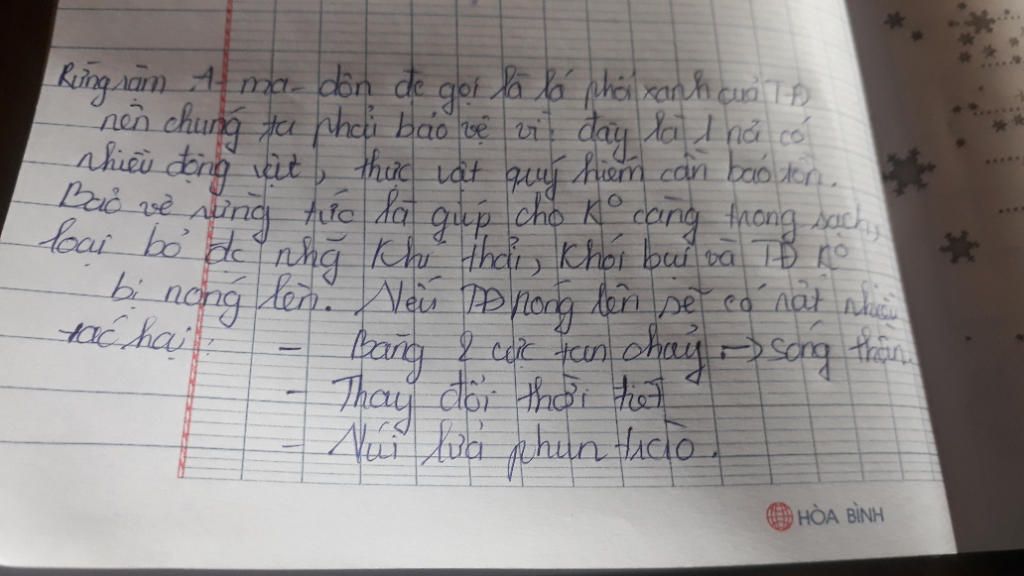 Rừng rậm A-ma-dôn đc gọi là lá phổi xanh của TĐ
nên chúng ta phải bảo vệ vì đây là 1 nơi có
nhiều động vật, thực vật quý hiếm cần bảo tồn.
Bảo vệ rừng tức là giúp cho K° càng trong sạch,
loại bỏ đc nhg Khí thải, Khói bụi và TĐ K°
bị nóng lên. Nếu TĐ nóng lên sẽ có rất nhiều
tác hại:
- Băng 2 cực tan chảy → sóng thần.
- Thay đổi thời tiết
- Núi lửa phun trào.
HÒA BÌNH